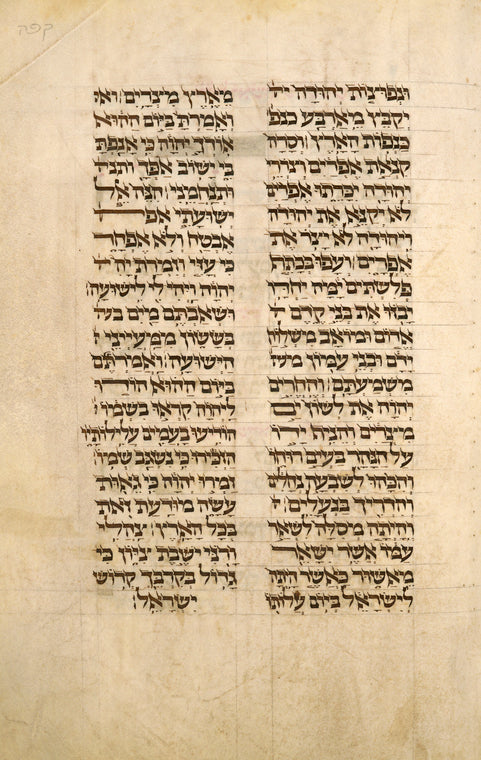 קפה
ונפוצות יהודה
יקבץ מארבע כנפ
כנפות הארץ׃ וסרה
קנאת אפרים וצררי
יהודה יכרתו אפרים
לא יקנא את יהודה
ויהודה לא יצר את
אפרים׃ ועפו בכתף
פלשתים ימה יחדו
יבזו את בני קדם
אדום ומואב משלוח
ידם ובני עמון
משמעתם׃ והחרים
יהוה את לשון ים
מצרים והניף ידו
על הנהר בעים רוחו
והכהו לשבעה נחלים
והדריך בנעלים׃
והיתה מסלה לשאר
עמו אשר ישאר
מאשור כאשר היתה
לישראל ביום עלותו
מארץ מצרים׃ ואמ
ואמרת ביום ההוא
אודך יהוה כי אנפת
בי ישוב אפך
ותנחמני׃ הנה אל
ישועתי
אבטח ולא אפחד
כי עזי וזמרת יה
יהוה ויהי לי לישועה׃
ושאבתם מים
בששון ממעייני
הישועה׃ ואמרתם
ביום ההוא הודו
ליהוה קראו בשמו
הודיעו בעמים עלילותיו
הזכירו כי נשגב שמו׃
זמרו יהוה כי גאות
עשה מודעת זאת
בכל הארץ׃ צהלי
ורני ישבת ציון כי
גדול בקרבך קדוש
ישראל׃